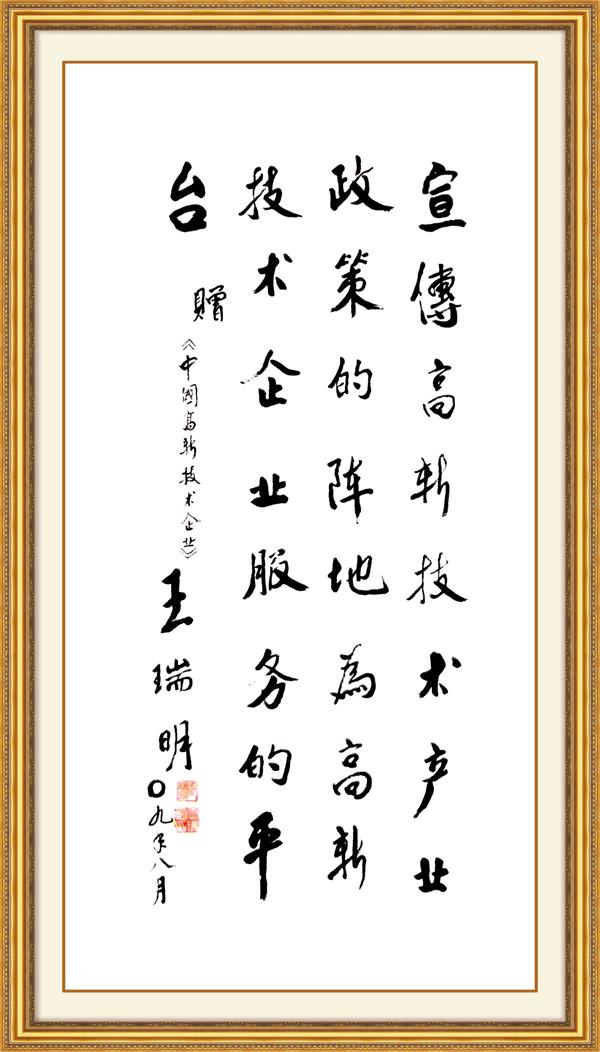 宣傳高新技术产业
政策的阵地為高新
技术企业服务的平
台
贈
《中國高新技术企业》
王瑞明
〇九年八月